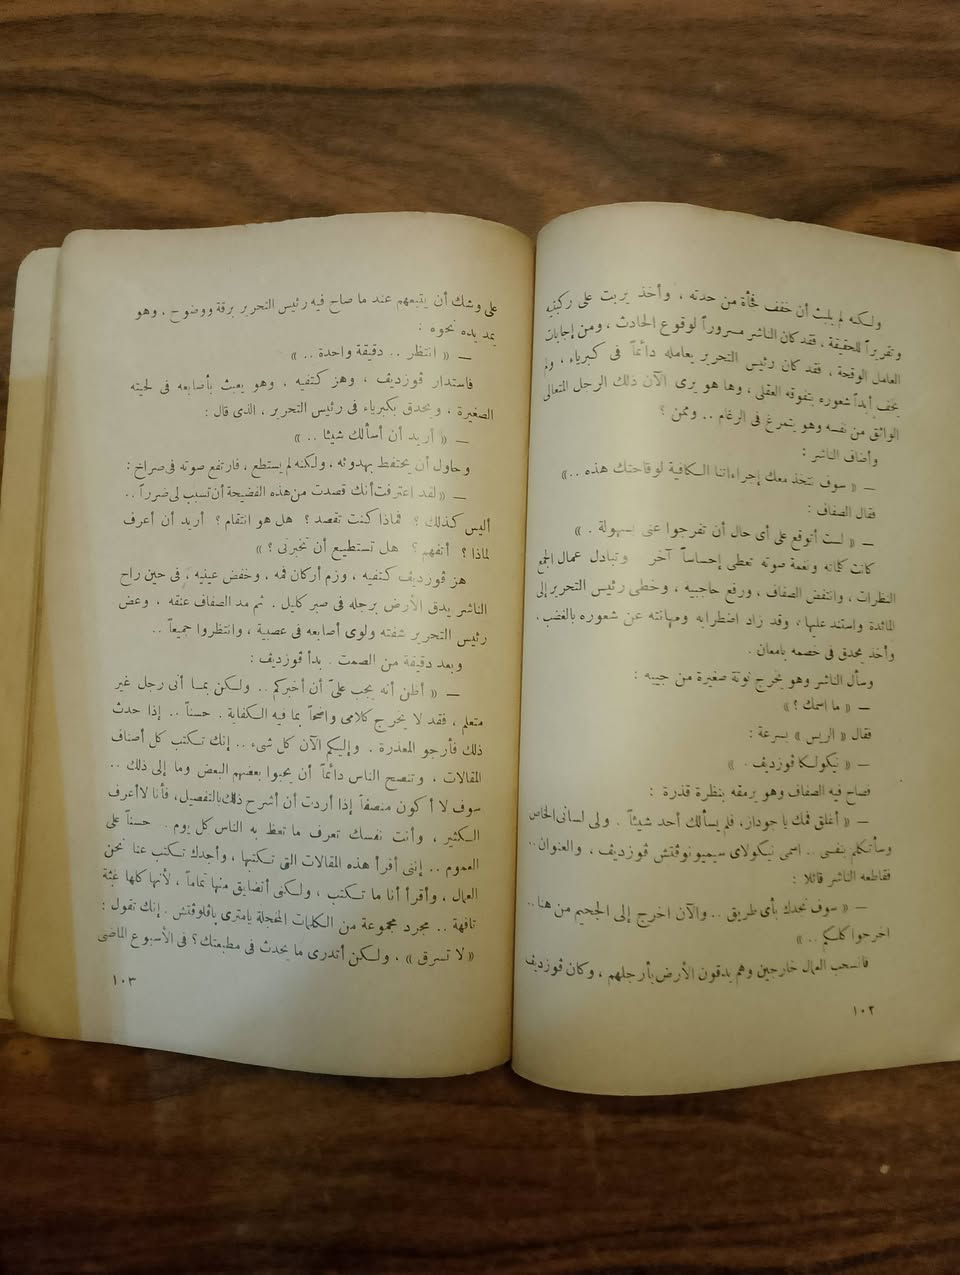 ولكنه لم يلبث أن خفف فجأة من حدته ، وأخذ يربت على ركبتيه
وتقريراً للحقيقة ، فقد كان الناشر مسروراً لوقوع الحادث ، ومن إجابات
العامل الوقحة ، فقد كان رئيس التحرير يعامله دائماً فى كبرياء ، ولم
يخف أبداً شعوره بتفوقه العقلى ، وها هو يرى الآن ذلك الرجل المتعالى
الواثق من نفسه وهو يتمرغ فى الرغام .. وممن ؟
وأضاف الناشر :
— « سوف نتخذ معك إجراءاتنا الكافية لوقاحتك هذه .. »
فقال الصفاف :
— « لست أتوقع على أى حال أن تفرجوا عنى بسهولة . »
كانت كلماته ونغمة صوته تعطى إحساساً آخر وتبادل عمال الجمع
النظرات ، وانتفض الصفاف ، ورفع حاجبيه ، وخطى رئيس التحرير إلى
المائدة واستند عليها ، وقد زاد اضطرابه ومهانته عن شعوره بالغضب ،
وأخذ يحدق فى خصمه بامعان .
وسأل الناشر وهو يخرج نوتة صغيرة من جيبه :
— « ما اسمك ؟ »
فقال « الريس » بسرعة :
— « نيكولكا ڤوزديف . »
فصاح فيه الصفاف وهو يرمقه بنظرة قذرة :
— « أغلق فمك يا جوداز ، فلم يسألك أحد شيئاً . ولى لسانى الخاص
وسأتكلم بنفسى .. اسمى نيكولاى سيميونوڤتش ڤوزديف ، والعنوان ..
فقاطعه الناشر قائلا :
— « سوف نجدك بأى طريق .. والآن اخرج إلى الجحيم من هنا ..
اخرجوا كلكم .. »
فانسحب العمال خارجين وهم يدقون الأرض بأرجلهم ، وكان ڤوزديف
١٠٢
على وشك أن يتبعهم عند ما صاح فيه رئيس التحرير برقة ووضوح ، وهو
يمد يده نحوه :
— « انتظر .. دقيقة واحدة .. »
فاستدار ڤوزديف ، وهز كتفيه ، وهو يعبث بأصابعه فى لحيته
الصغيرة ، ويحدق بكبرياء فى رئيس التحرير ، الذى قال :
— « أريد أن أسألك شيئا .. »
وحاول أن يحتفظ بهدوئه ، ولكنه لم يستطع ، فارتفع صوته فى صراخ :
— « لقد اعترفت أنك قصدت من هذه الفضيحة أن تسبب لى ضرراً ..
أليس كذلك ؟ فماذا كنت تقصد ؟ هل هو انتقام ؟ أريد أن أعرف
لماذا ؟ أتفهم ؟ هل تستطيع أن تخبرنى ؟ »
هز ڤوزديف كتفيه ، وزم أركان فمه ، وخفض عينيه ، فى حين راح
الناشر يدق الأرض برجله فى صبر كليل . ثم مد الصفاف عنقه . وعض
رئيس التحرير شفته ولوى أصابعه فى عصبية ، وانتظروا جميعاً ..
وبعد دقيقة من الصمت . بدأ ڤوزديف :
— « أظن أنه يجب علىّ أن أخبركم .. ولكن بما أنى رجل غير
متعلم ، فقد لا يخرج كلامى واضحاً بما فيه الكفاية . حسناً .. إذا حدث
ذلك فأرجو المعذرة . وإليكم الآن كل شىء .. إنك تكتب كل أصناف
المقالات ، وتنصح الناس دائماً أن يحبوا بعضهم البعض وما إلى ذلك ..
سوف لا أكون منصفاً إذا أردت أن أشرح ذلك بالتفصيل ، فأنا لا أعرف
الكثير ، وأنت نفسك تعرف ما تعظ به الناس كل يوم . حسناً على
العموم .. إننى أقرأ هذه المقالات التى تكتبها ، وأجدك تكتب عنا نحن
العمال ، وأقرأ أنا ما تكتب ، ولكنى أتضايق منها تماماً ، لأنها كلها غثة
تافهة .. مجرد مجموعة من الكلمات المخجلة يامترى باڤلوڤتش . إنك تقول :
« لا تسرق » ، ولكن أتدرى ما يحدث فى مطبعتك ؟ فى الأسبوع الماضى
١٠٣